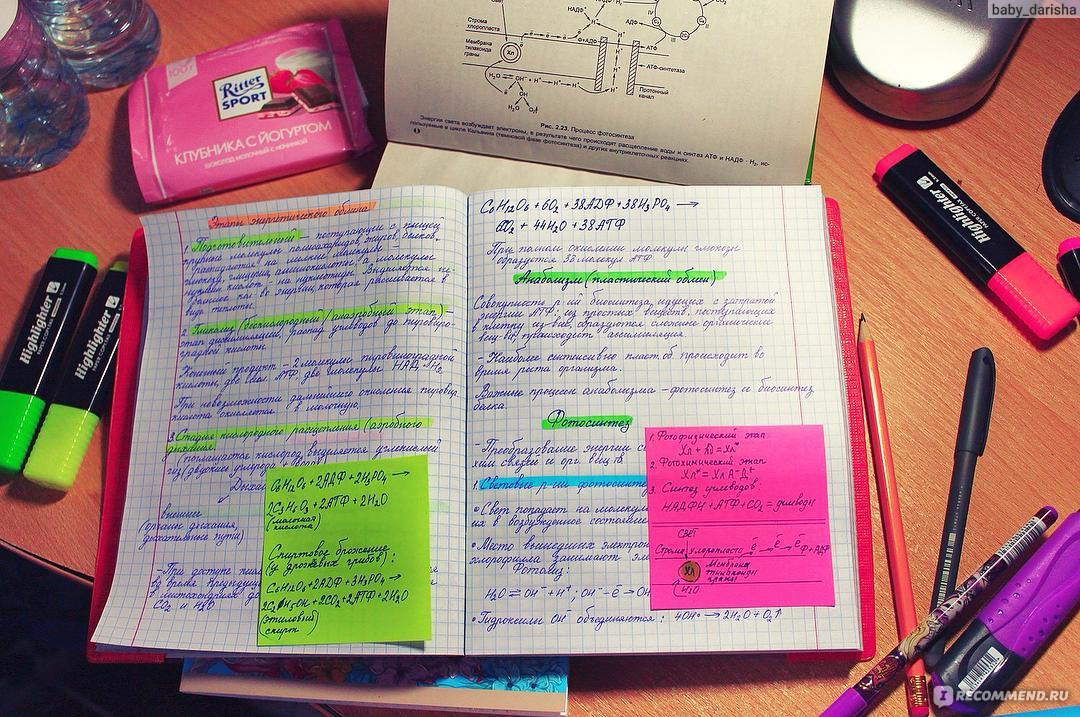 baby_darisha
Строма
хлоропласта
Мембрана
тилакоида
граны
Хл
НАДФ
АДФ
Ф+АДФ
АТФ
АТФ-синтетаза
Протонный
канал
Рис. 2.23. Процесс фотосинтеза
Энергия света возбуждает электроны, в результате чего происходят расщепление воды и синтез АТФ и НАДФ · Н₂, ис-
пользуемые в цикле Кальвина (темновой фазе фотосинтеза) и других внутриклеточных реакциях.
100г
Ritter
SPORT
КЛУБНИКА С ЙОГУРТОМ
шоколад молочный с начинкой
Highlighter
Highlighter
Highlighter
Этапы энергетического обмена
1. Подготовительный - поступающие с пищей
крупные молекулы полисахаридов, жиров, белков
распадаются на мелкие молекулы -
глюкозу, глицерин, аминокислоты, а молекулы
нуклеин. кислот - на нуклеотиды. Выделяется не-
большое кол-во энергии, которая рассеивается в
виде теплоты.
2. Гликолиз (бескислородный/анаэробный этап) -
этап диссимиляции, распад углеводов до пировино-
градной кислоты.
Конечный продукт - 2 молекулы пировиноградной
кислоты, две мол. АТФ две молекулы НАД·Н₂
При невозможности дальнейшего окисления пировин.
кислота окисляется в молочную.
3. Стадия кислородного расщепления (аэробного
дыхания)
поглощается кислород, выделяется углекислый
внешнее
(органы дыхания,
дыхательные пути)
-При доступе
во время предыдущ
в митохондриях до
CO₂ и H₂O
C₆H₁₂O₆+2АДФ+2H₃PO₄ →
2C₃H₆O₃+2АТФ+2H₂O
(молочная
кислота)
Спиртовое брожение
(у дрожжевых грибов):
C₆H₁₂O₆+2АДФ+3H₃PO₄ →
2C₂H₅OH+2CO₂+2АТФ+2H₂O
(этиловый
спирт)
C₆H₁₂O₆ + 6O₂ + 38АДФ + 38H₃PO₄ →
6CO₂ + 44H₂O + 38АТФ
При полном окислении молекулы глюкозы
образуется 38 молекул АТФ
Анаболизм (пластический обмен)
Совокупность р-ий биосинтеза, идущих с затратой
энергии АТФ: из простых веществ, поступающих
в клетку из-вне, образуются сложные органические
вещ-ва, происходит ассимиляция.
-Наиболее интенсивно пласт. об. происходит во
время роста организма.
Важные процессы анаболизма - фотосинтез и биосинтез
белка.
Фотосинтез
- Преобразование энергии с
хим связей и орг. вещ.
1. Световые р-ии фотосинте
• Свет попадает на молекул
их в возбужденное состояние
• Место вышедших электрон
хлорофилла занимают эл
Фотолиз:
H₂O ⇄ OH⁻ + H⁺; OH⁻ - ē → OH
• Гидроксилы OH объединяются: 4OH → 2H₂O + O₂↑
1. Фотофизический этап
Хл + hν = Хл*
2. Фотохимический этап
3. Синтез углеводов:
НАДФН+АТФ+CO₂ = углеводы
СВЕТ
Строма хлоропласта → ē → ē → ē Ф+АДФ
Хл
Мембрана
тилакоида
граны
H₂O
IRECOMMEND.RU